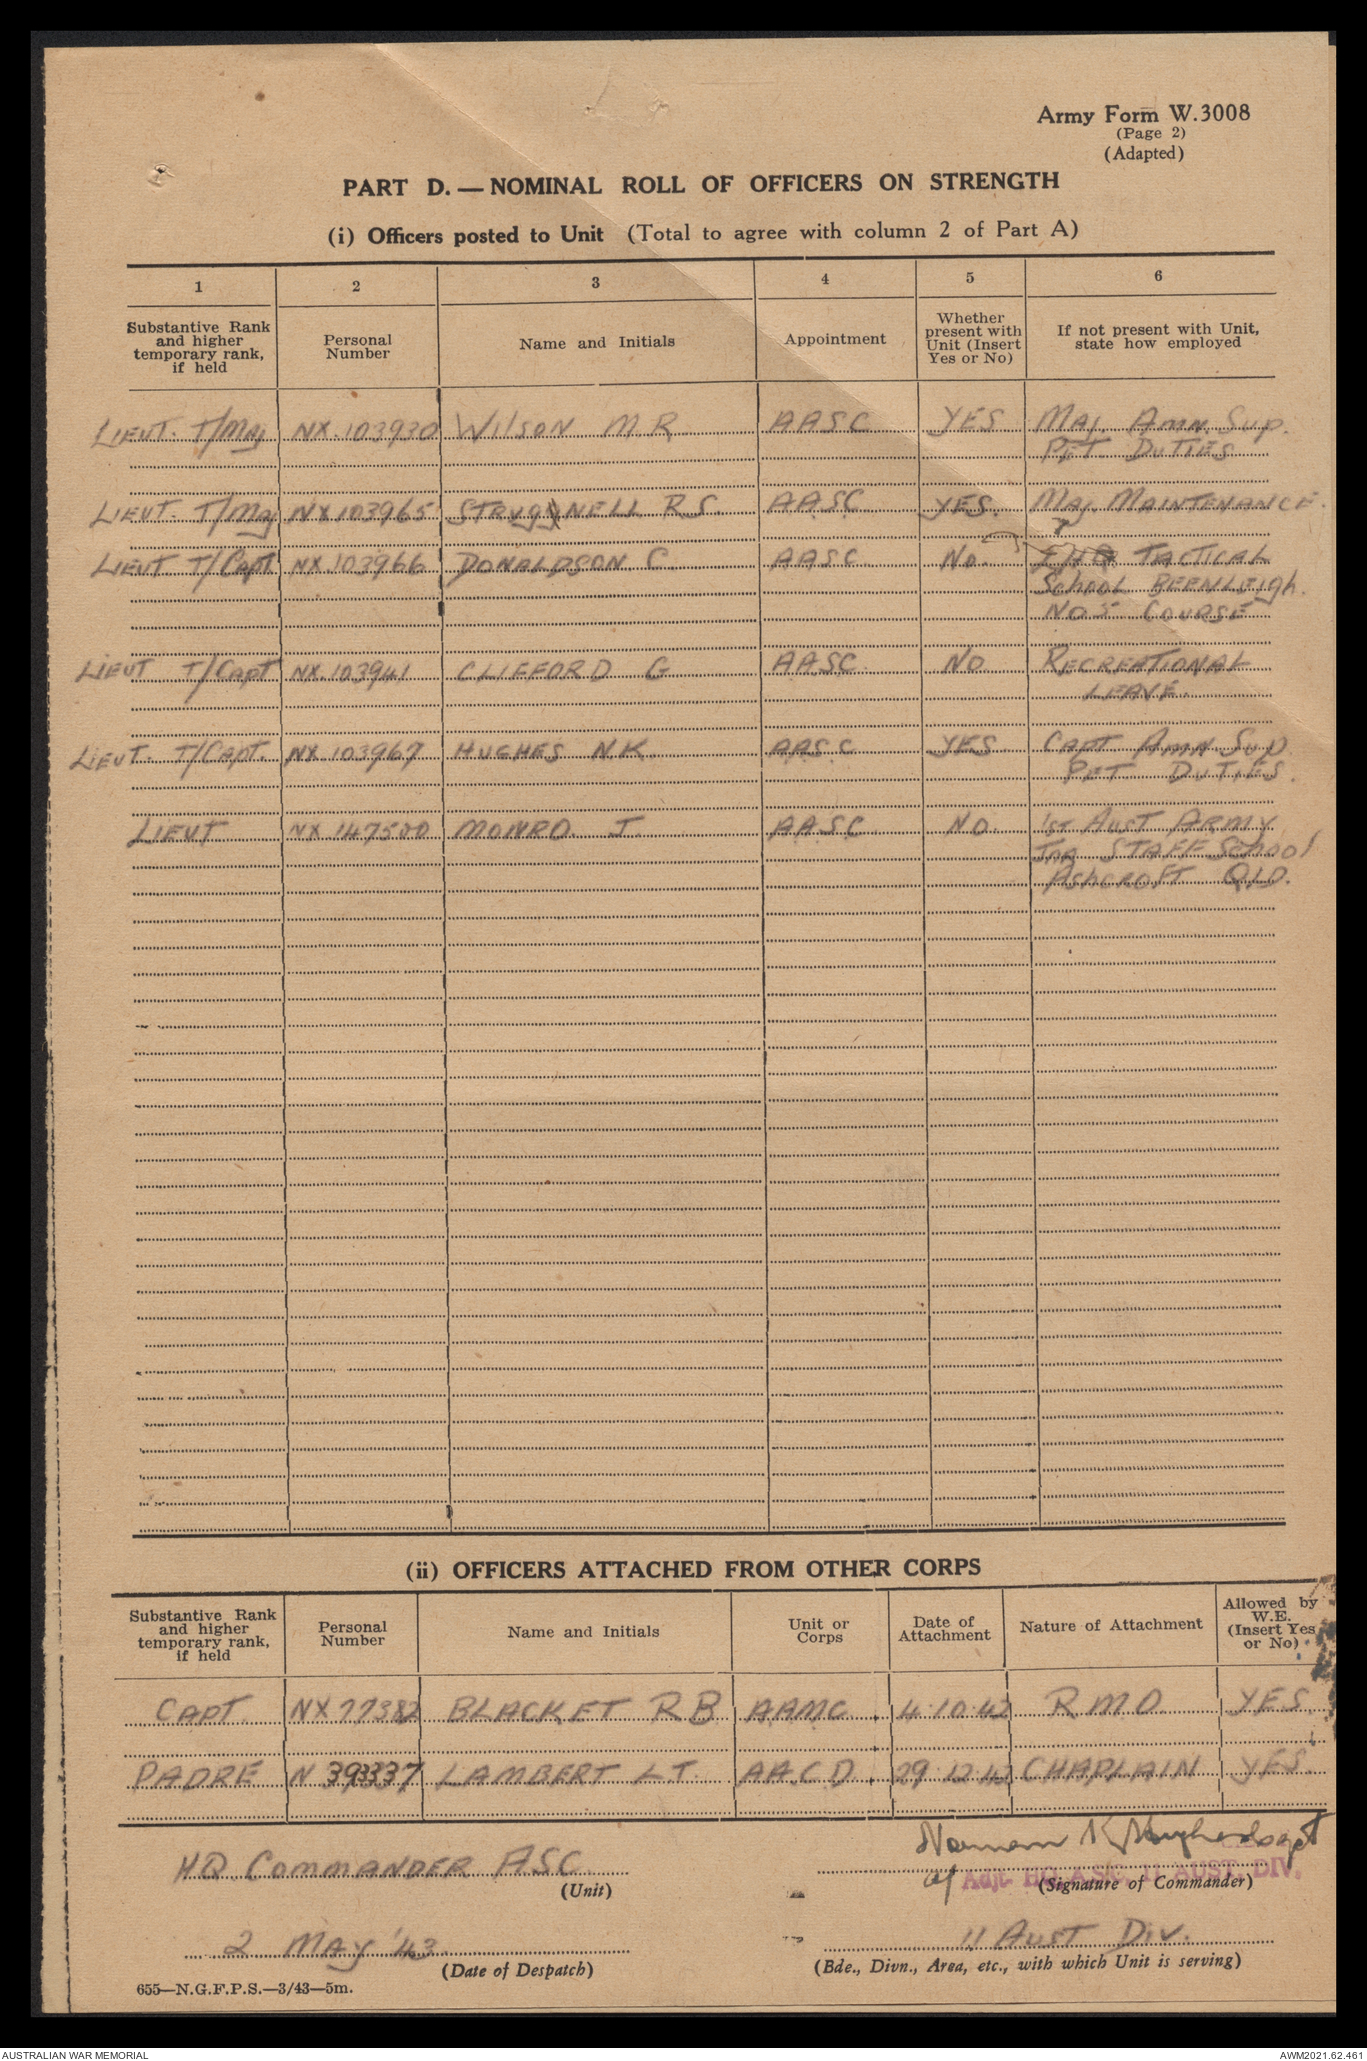 Army Form W.3008
(Page 2)
(Adapted)
PART D.—NOMINAL ROLL OF OFFICERS ON STRENGTH
(i) Officers posted to Unit (Total to agree with column 2 of Part A)
1 2 3 4 5 6
Substantive Rank and higher temporary rank, if held
Personal Number
Name and Initials
Appointment
Whether present with Unit (Insert Yes or No)
If not present with Unit, state how employed
LIEUT. T/Maj NX.103930 WILSON M R AASC YES Maj. Amn. Sup.
PET. DUTIES
LIEUT. T/Maj NX103965 STRUGNELL R S. AASC YES. Maj. MAINTENANCE.
LIEUT T/Capt. NX.103966 DONALDSON C. AASC. No. TACTICAL
School BEENLEIGH.
NO 5 COURSE
LIEUT T/Capt NX.103941 CLIFFORD G AASC. NO RECREATIONAL
LEAVE.
LIEUT. T/CAPT. NX 103967 HUGHES N.K. AASC YES CAPT AMN SUP
PET DUTIES.
LIEUT NX 147500 MONRO. J. AASC NO. 1st AUST ARMY
Jnr STAFF School
ASHCROFT QLD.
(ii) OFFICERS ATTACHED FROM OTHER CORPS
Substantive Rank and higher temporary rank, if held
Personal Number
Name and Initials
Unit or Corps
Date of Attachment
Nature of Attachment
Allowed by W.E. (Insert Yes or No)
CAPT. NX77382 BLACKET R B AAMC. 4.10.42 R M O. YES.
PADRE N 393337 LAMBERT L.T. AA.C.D. 29.12.42 CHAPLAIN YES.
Norman K Hughes Capt
H.Q. COMMANDER ASC.
a/ Adjt. HQ A.S.C. 11 AUST. DIV.
(Unit)
(Signature of Commander)
2 MAY '43.
11 AUST DIV.
(Date of Despatch)
(Bde., Divn., Area, etc., with which Unit is serving)
655—N.G.F.P.S.—3/43—5m.
AUSTRALIAN WAR MEMORIAL
AWM2021.62.461